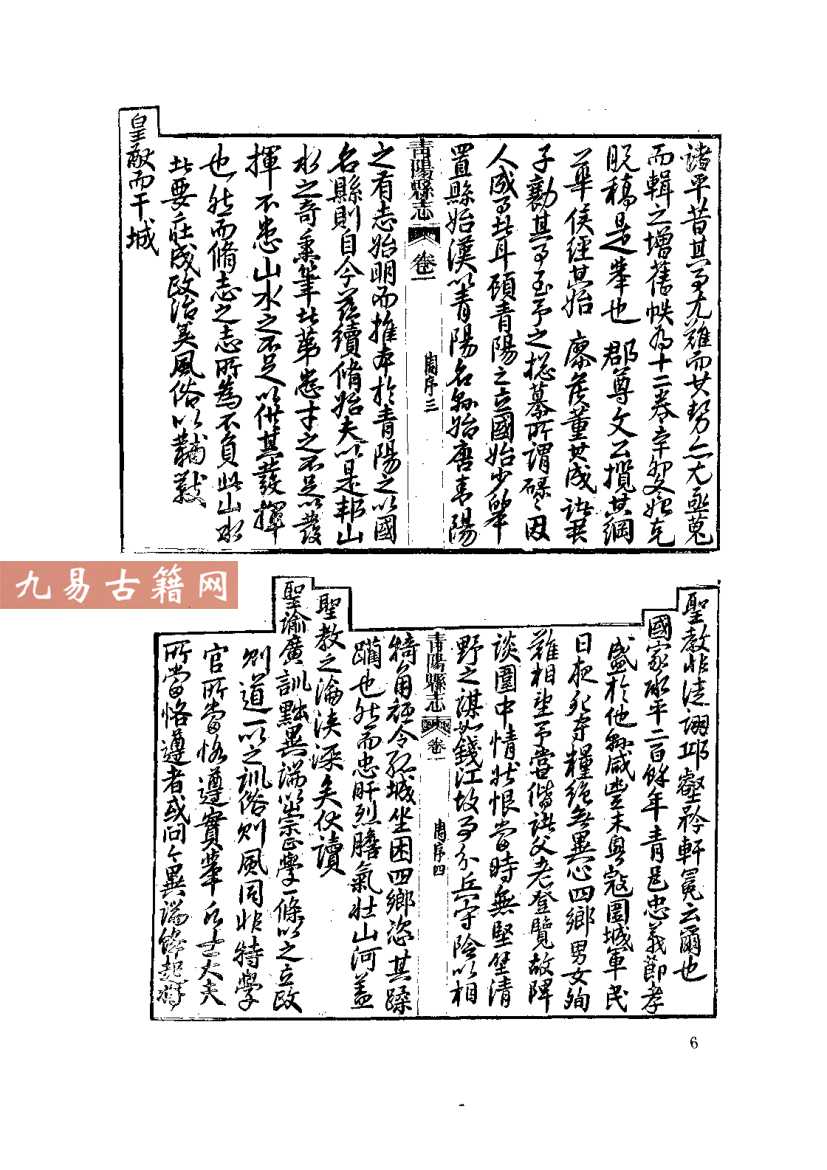 諸平昔其事尤難而其勢亦尤亟蒐
而輯之增舊帙為十二卷幸
脫稿是舉也 郡尊文公攬其綱
華侯經其始 廖侯董其成諸君
子勷其事至予之總纂所謂碌碌因
人成事者耳顧青陽之立國始少皞
置縣始漢以青陽名縣始唐青陽
青陽縣志 卷一 周序三
之有志始明而推本於青陽之以國
名縣則自今茲續脩始夫以是邦山
水之奇秉筆者第患才之不足以發
揮不患山水之不足以供其發揮
也然而脩志之志所為不負此山水
者要在成政治美風俗以黼黻
皇猷而干城
聖教非徒詡邱壑矜軒冕云爾也
國家承平二百餘年青邑忠義節孝
盛於他縣咸豐末粵寇圍城軍民
日夜死守糧絕無異心四鄉男女殉
難相望予嘗偕諸父老登覽故陴
談圍中情狀恨當時無堅壁清
野之謀如錢江故事分兵守險以相
青陽縣志 卷一 周序四
犄角祗令孤城坐困四鄉恣其蹂
躪也然而忠肝烈膽氣壯山河蓋
聖教之淪浹深矣伏讀
聖諭廣訓黜異端以崇正學一條以之立政
則道一以之訓俗則風同非特學
官所當恪遵實舉凡士大夫
所當恪遵者或問今異端鋒起將
九易古籍网
6